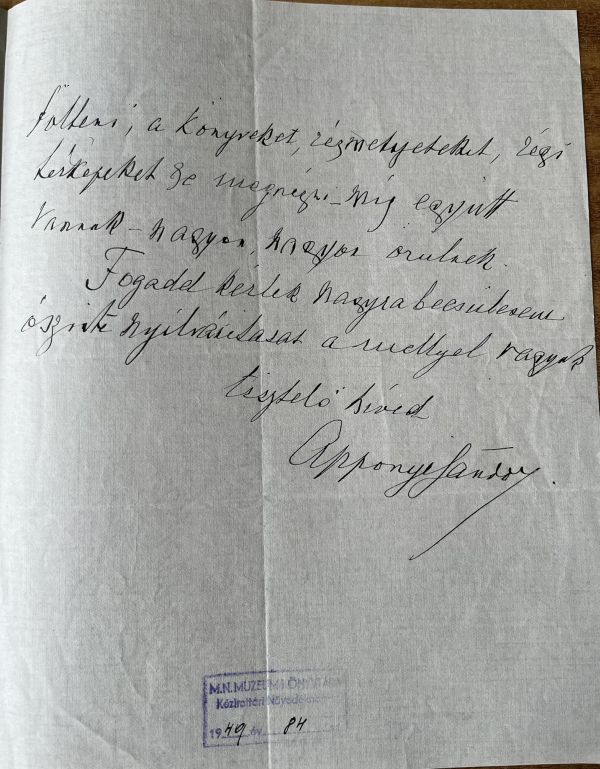 tölteni, a könyveket, rézmetzeteket, régi
térképeket &c megnézni – míg együtt
vannak – nagyon, nagyon örülnék.
Fogadd kérlek nagyrabecsülésem
őszinte nyilvánitását a mellyel vagyok
tisztelő hived
Apponyi Sándor
M.N. MUZEUM KÖNYVTÁRA
Kézirattári Növedék
1949 év 84